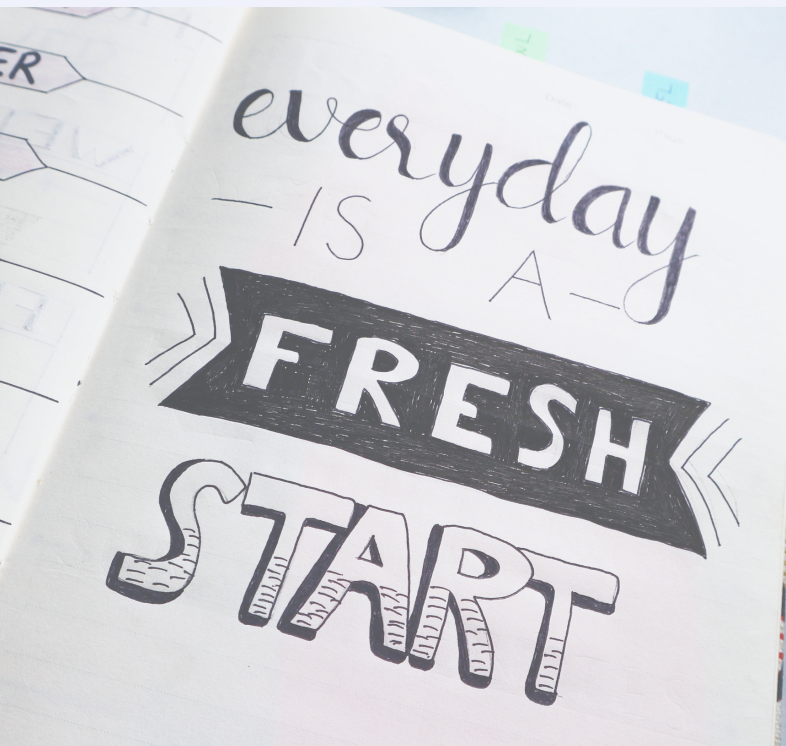 ER
everyday
–IS
A–
FRESH
START